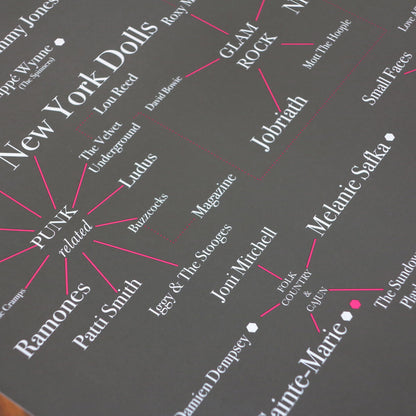 my Jones
ppé Wynne
(The Spinners)
New York Dolls
Roxy M
GLAM
ROCK
Mott The Hoople
David Bowie
Lou Reed
Small Faces
Jobriath
The Velvet
Underground
Ludus
Buzzcocks
Magazine
PUNK
related
Iggy & The Stooges
Patti Smith
Ramones
Cramps
Melanie Safka
Joni Mitchell
FOLK
COUNTRY
&
CAJUN
The Sundow
Damien Dempsey
ainte-Marie